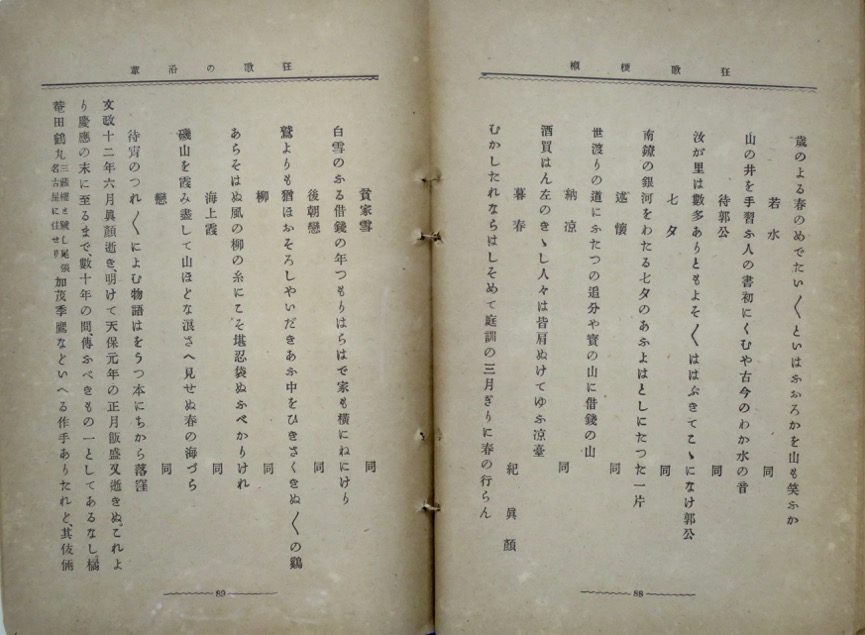 狂歌梗概
歳のよる春のめでたい〳〵といはふおろかを山も笑ふか
若水 同
山の井を手習ふ人の書初にくむや古今のわか水の音
待郭公 同
汝が里は數多ありともよそ〳〵ははぶきてこゝになけ郭公
七夕 同
南鐐の銀河をわたる七夕のあふよはとしにたつた一片
述懷 同
世渡りの道にふたつの追分や寳の山に借錢の山
納凉 同
酒買はん左のきゝし人々は皆肩ぬけてゆふ凉臺
暮春 紀眞顏
むかしたれならはしそめて庭訓の三月ぎりに春の行らん
88
狂歌の沿革
貧家雪 同
白雪のふる借錢の年つもりはらはで家も橫にねにけり
後朝戀 同
鷲よりも猶ほおそろしやいだきあふ中をひきさくきぬ〳〵の鷄
柳 同
あらそはぬ風の柳の糸にこそ堪忍袋ぬふべかりけれ
海上霞 同
磯山を霞み盡して山ほどな浪さへ見せぬ春の海づら
戀 同
待宵のつれ〳〵によむ物語はをうつ本にちから落窪
文政十二年六月眞顏逝き、明けて天保元年の正月飯盛又逝きぬ。これよ
り慶應の末に至るまで、數十年の間、傳ふべきもの一としてあるなし、橘
菴田鶴丸三藏樓と號し尾張名古屋に住せり加茂季鷹などいへる作手ありたれど、其伎倆
89